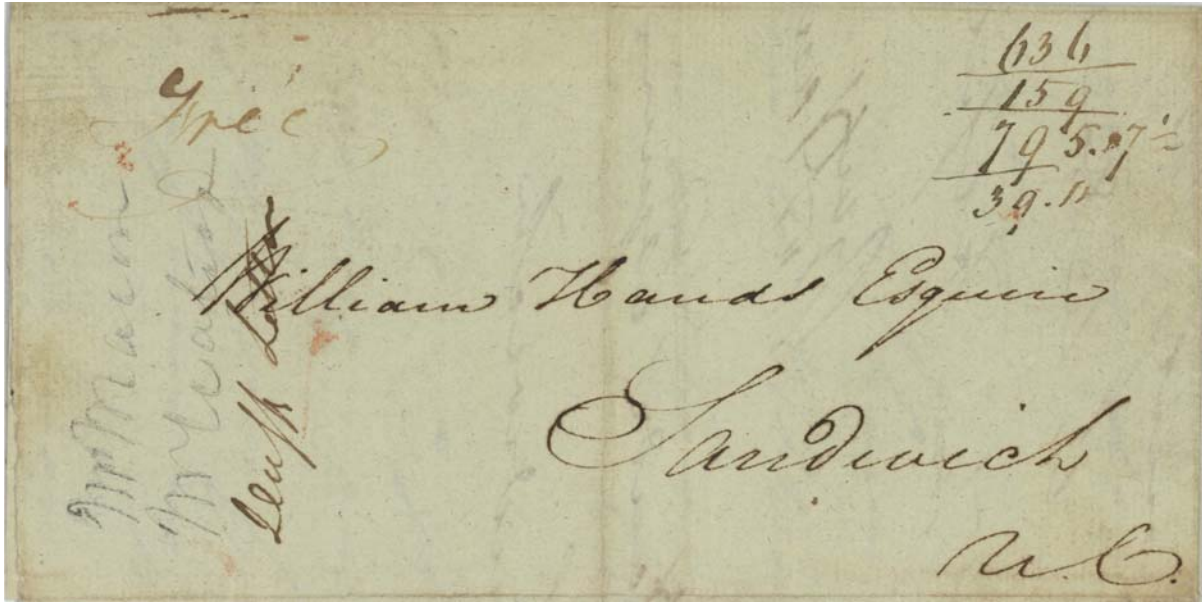 Free
636
159
795.
39.11
William Hands Esquire
Sandwich
U.C.
Mr Macom